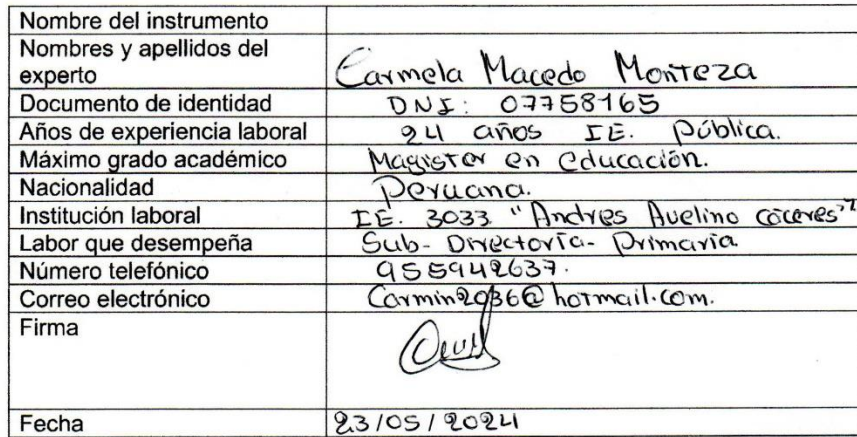 Nombre del instrumento
Nombres y apellidos del
experto Carmela Macedo Monteza
Documento de identidad DNI: 07758165
Años de experiencia laboral 24 años IE. Pública.
Máximo grado académico Magister en educación.
Nacionalidad Peruana.
Institución laboral IE. 3033 "Andres Avelino cáceres"
Labor que desempeña Sub-Directoría-Primaria
Número telefónico 955942637.
Correo electrónico Carmin2036@hotmail.com.
Firma
Fecha 23/05/2024